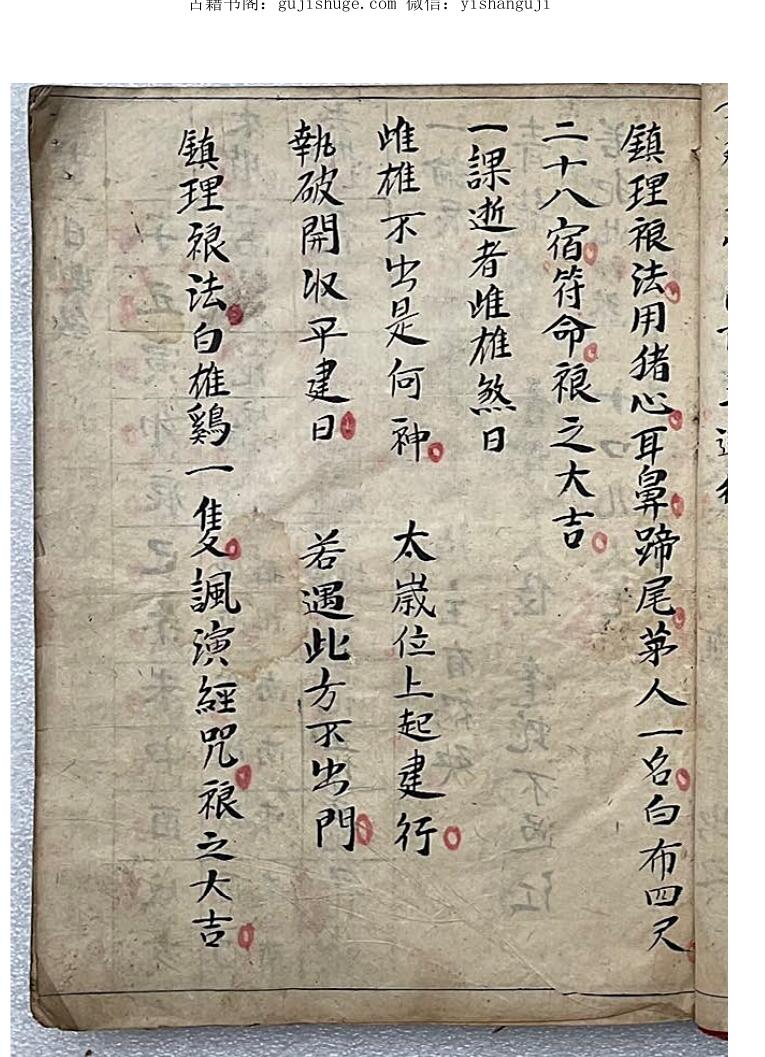 古籍书阁：gujishuge.com 微信：yishanguji
鎮理裉法用猪心耳鼻蹄尾茅人一名白布四尺
二十八宿符命裉之大吉
一課逝者雌雄煞日
雌雄不出是何神 太歲位上起建行
執破開收平建日 若遇此方不出門
鎮理裉法白雄鷄一隻諷演經咒裉之大吉